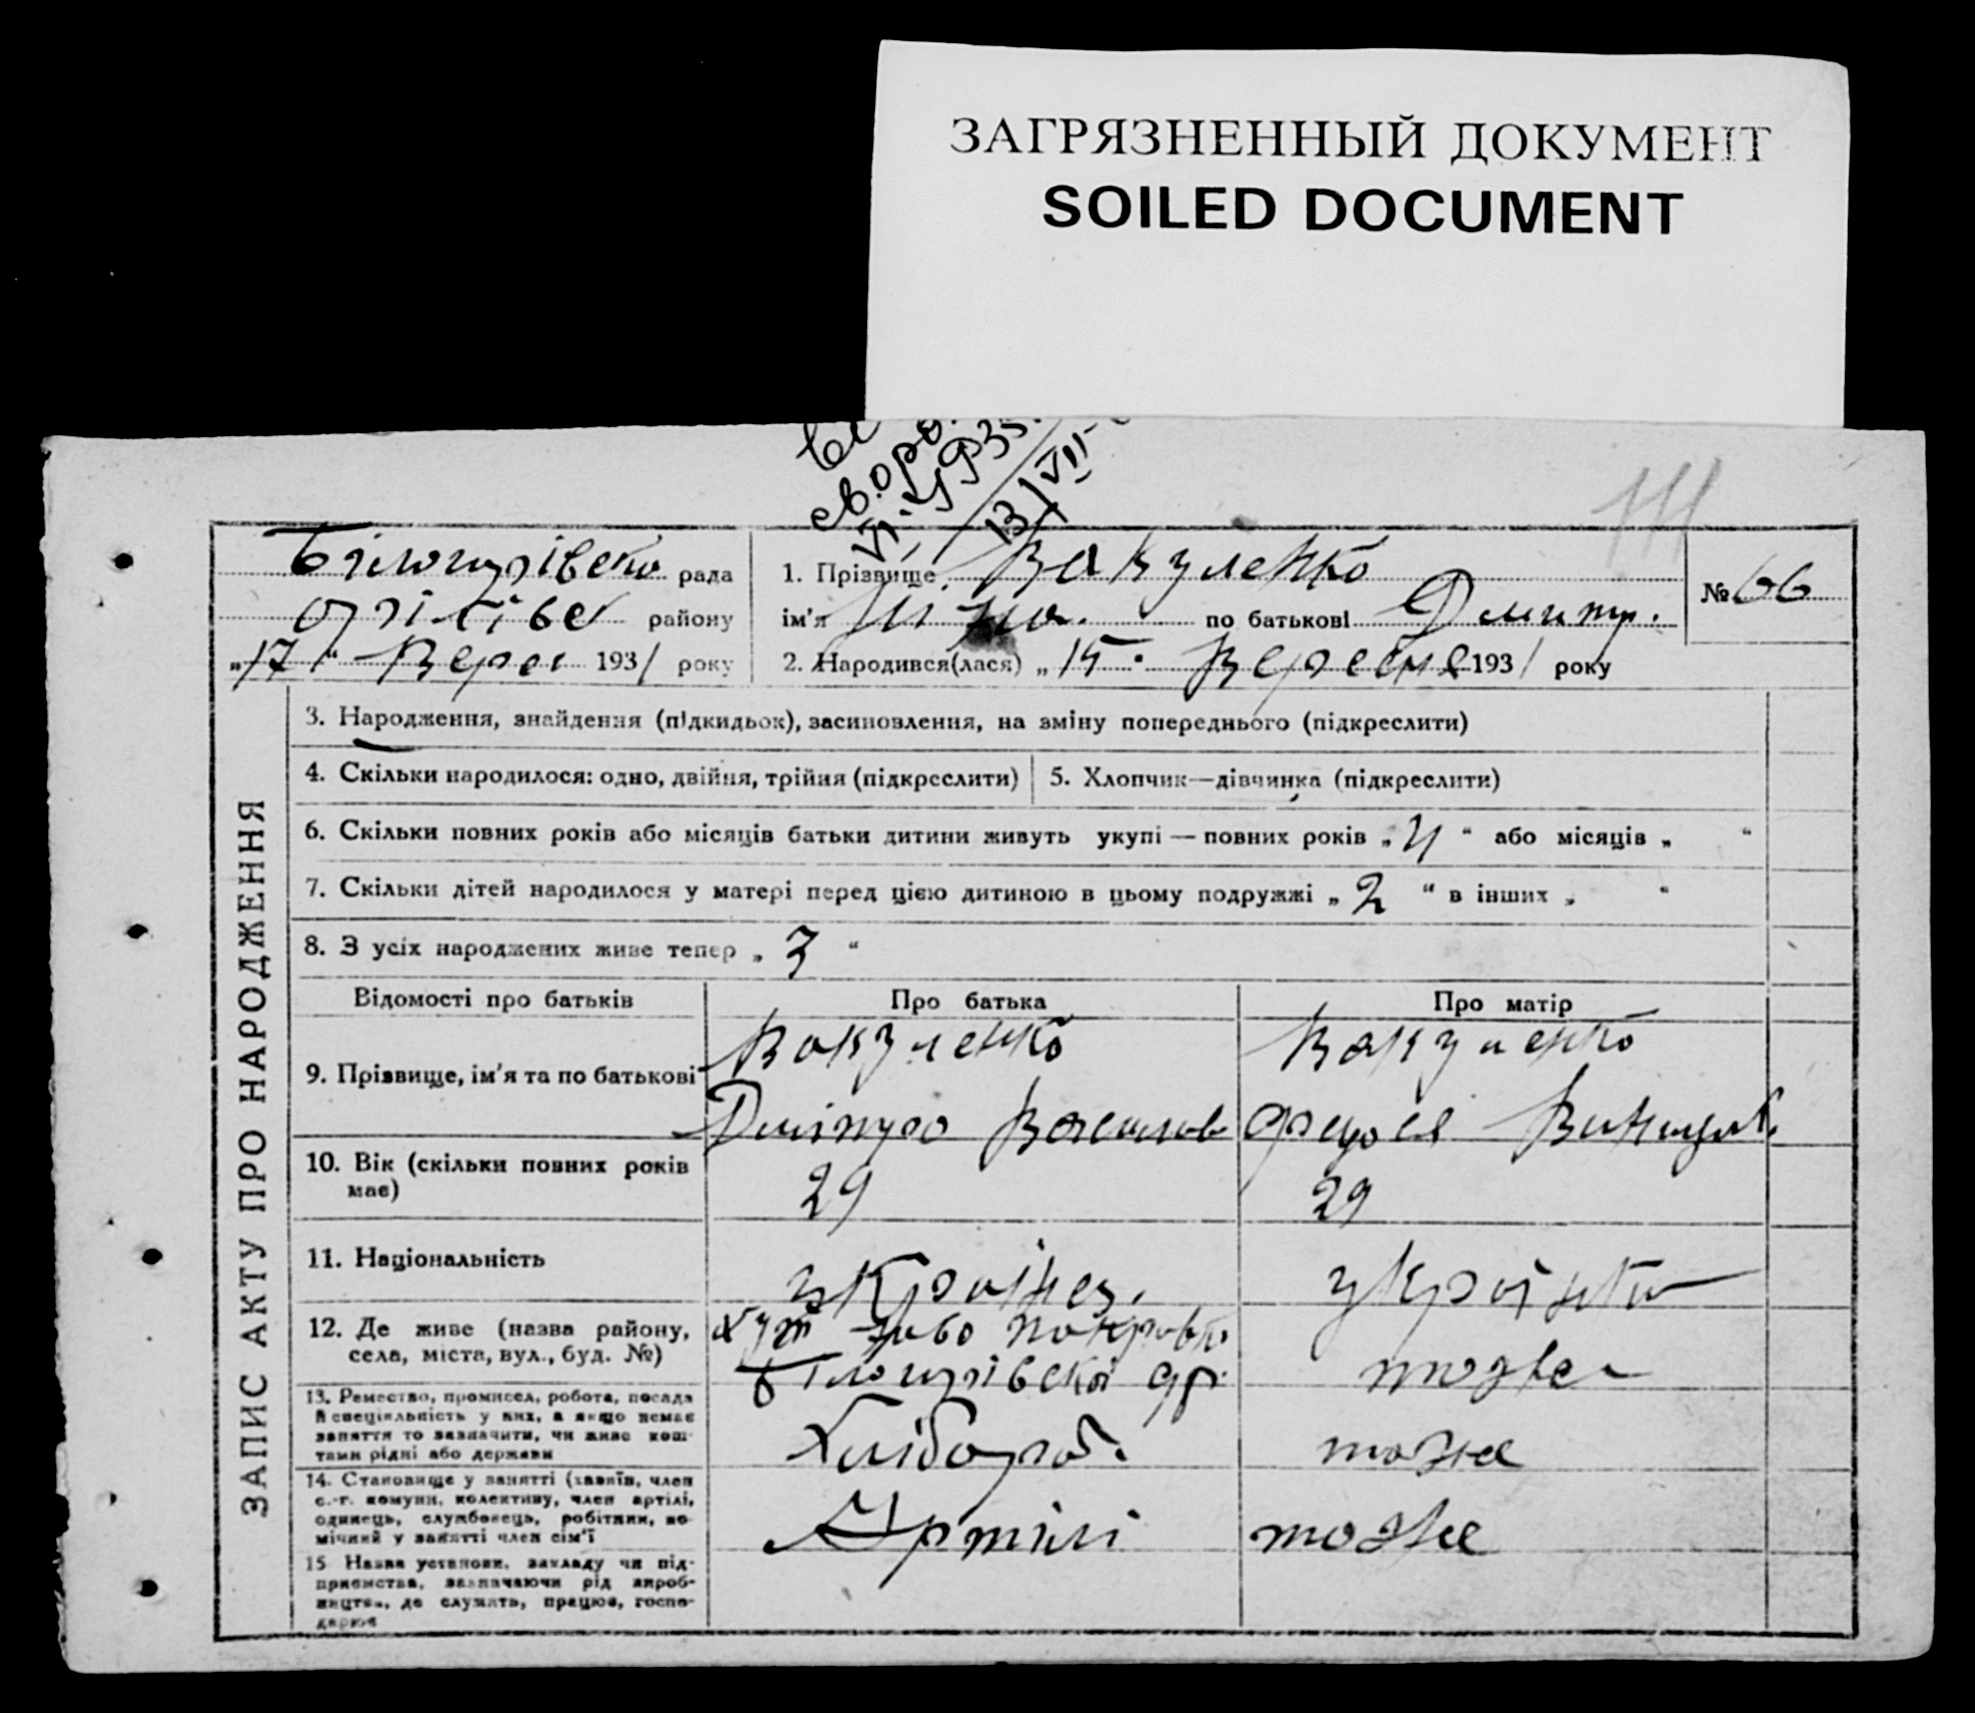 ЗАГРЯЗНЕННЫЙ ДОКУМЕНТ
SOILED DOCUMENT
рада
району
„17“ Верес 1931 року
1. Прізвище Вакуленко
ім'я по батькові Дмитр.
2. Народився(лася) „15. Вересня 1931 року
№ 66
ЗАПИС АКТУ ПРО НАРОДЖЕННЯ
3. Народження, знайдення (підкидьок), засиновлення, на зміну попереднього (підкреслити)
4. Скільки народилося: одно, двійня, трійня (підкреслити)
5. Хлопчик—дівчинка (підкреслити)
6. Скільки повних років або місяців батьки дитини живуть укупі — повних років „4“ або місяців „ “
7. Скільки дітей народилося у матері перед цією дитиною в цьому подружжі „2“ в інших „ “
8. З усіх народжених живе тепер „3“
Відомості про батьків
Про батька
Про матір
9. Прізвище, ім'я та по батькові
Вакуленко
Дмітро Васильов
Вакуленко
10. Вік (скільки повних років
має)
29
29
11. Національність
Українец.
Українка
12. Де живе (назва району,
села, міста, вул., буд. №)
Хут
тоже
13. Ремество, промисел, робота, посада
й спеціяльність у них, а якщо немає
заняття то зазначити, чи живе кош-
тами рідні або держави
Хлібороб.
тоже
14. Становище у занятті (хазяїн, член
с.-г. комуни, колективу, член артілі,
одинець, службовець, робітник, по-
мічний у занятті член сім'ї
Артілі
тоже
15 Назва установи, закладу чи під-
приємства, зазначаючи рід вироб-
ництва, де служить, працює, госпо-
дарює